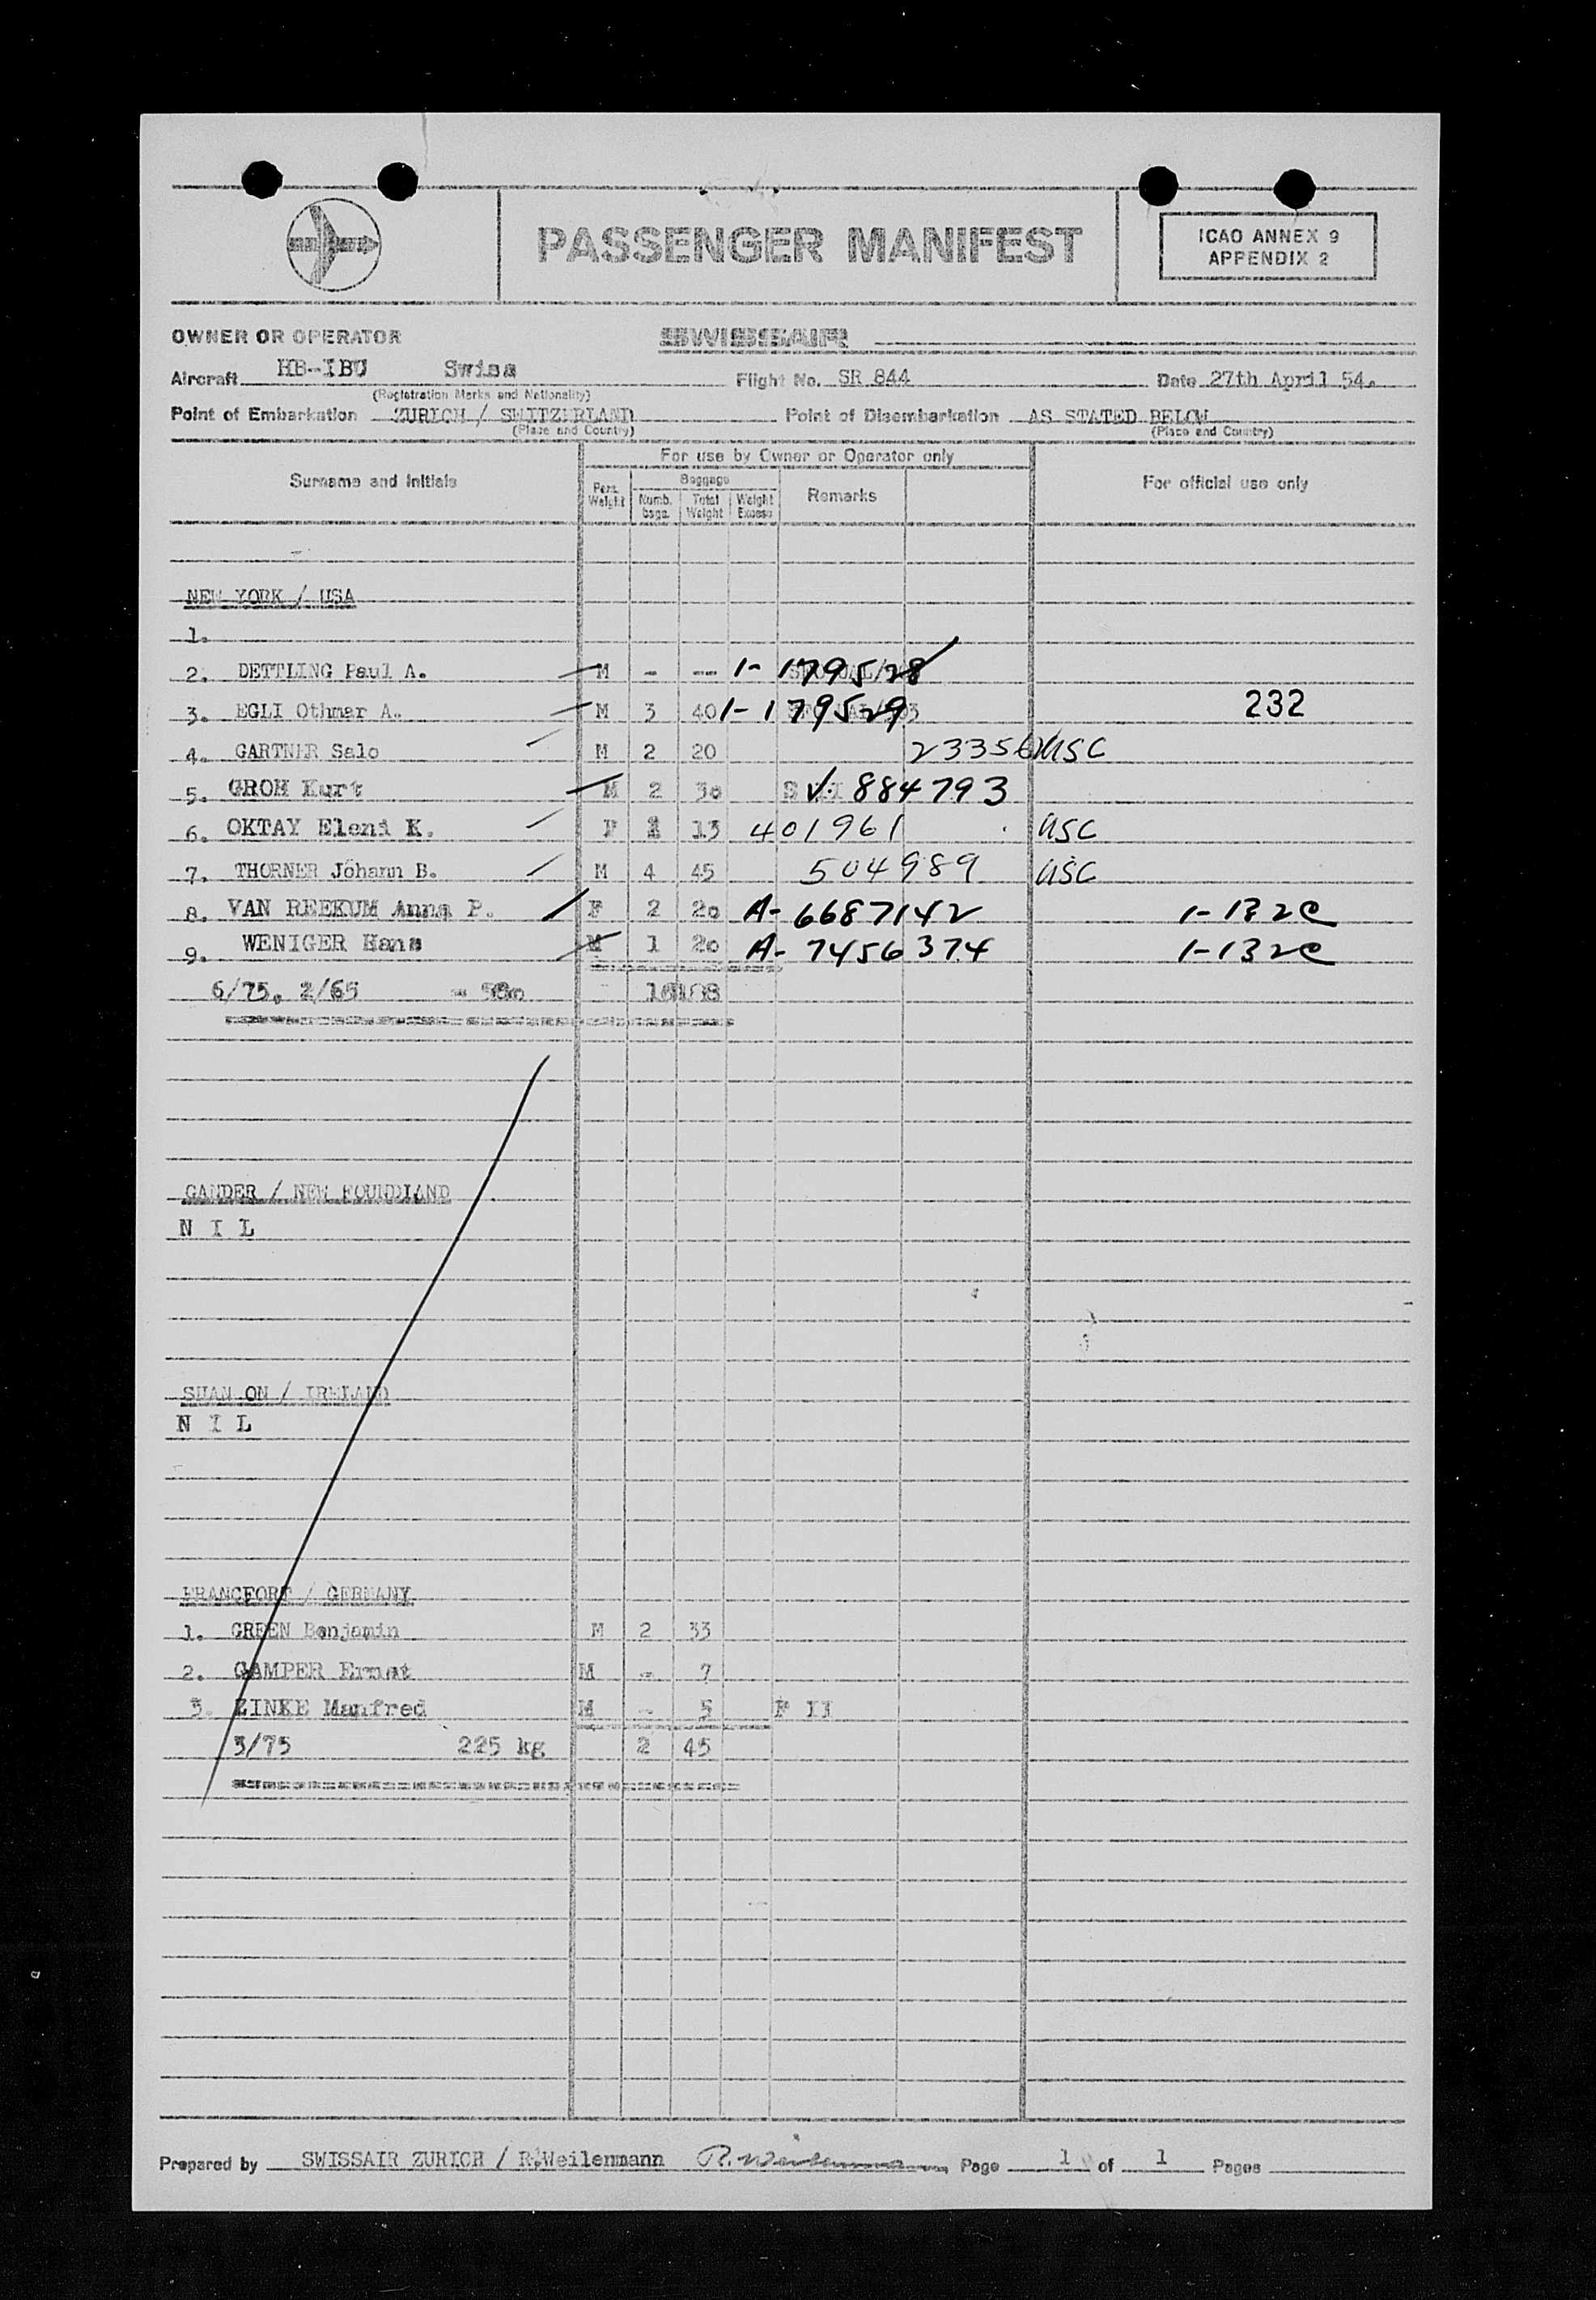 PASSENGER MANIFEST
ICAO ANNEX 9
APPENDIX 2
OWNER OR OPERATOR SWISSAIR
Aircraft HB-IBU Swiss Flight No. SR 844 Date 27th April 54.
(Registration Marks and Nationality)
Point of Embarkation ZURICH / SWITZERLAND Point of Disembarkation AS STATED BELOW
(Place and Country) (Place and Country)
For use by Owner or Operator only
Surname and Initials Pers. Weight Baggage Numb. bags. Total Weight Weight Excess Remarks For official use only
NEW YORK / USA
1.
2. DETTLING Paul A. M - -- 1-179528
3. EGLI Othmar A. M 3 40 1-179529 232
4. GARTNER Salo M 2 20 USC
5. GROH Kurt M 2 30 V. 884793
6. OKTAY Eleni K. F 1 13 401961 USC
7. THORNER Jöhann B. M 4 45 504989 USC
8. VAN REEKUM Anna P. F 2 20 A-6687142 1-132c
9. WENIGER Hans M 1 20 A-7456374 1-132c
6/75, 2/65 = 580
GANDER / NEW FOUNDLAND
N I L
SHAN ON / IRELAND
N I L
FRANCFORT / GERMANY
1. GREEN Benjamin M 2 33
2. GAMPER Ernst M - 7
3. ZINKE Manfred M - 5 F II
3/75 225 kg 2 45
Prepared by SWISSAIR ZURICH / R.Weilenmann R. Weilenmann Page 1 of 1 Pages